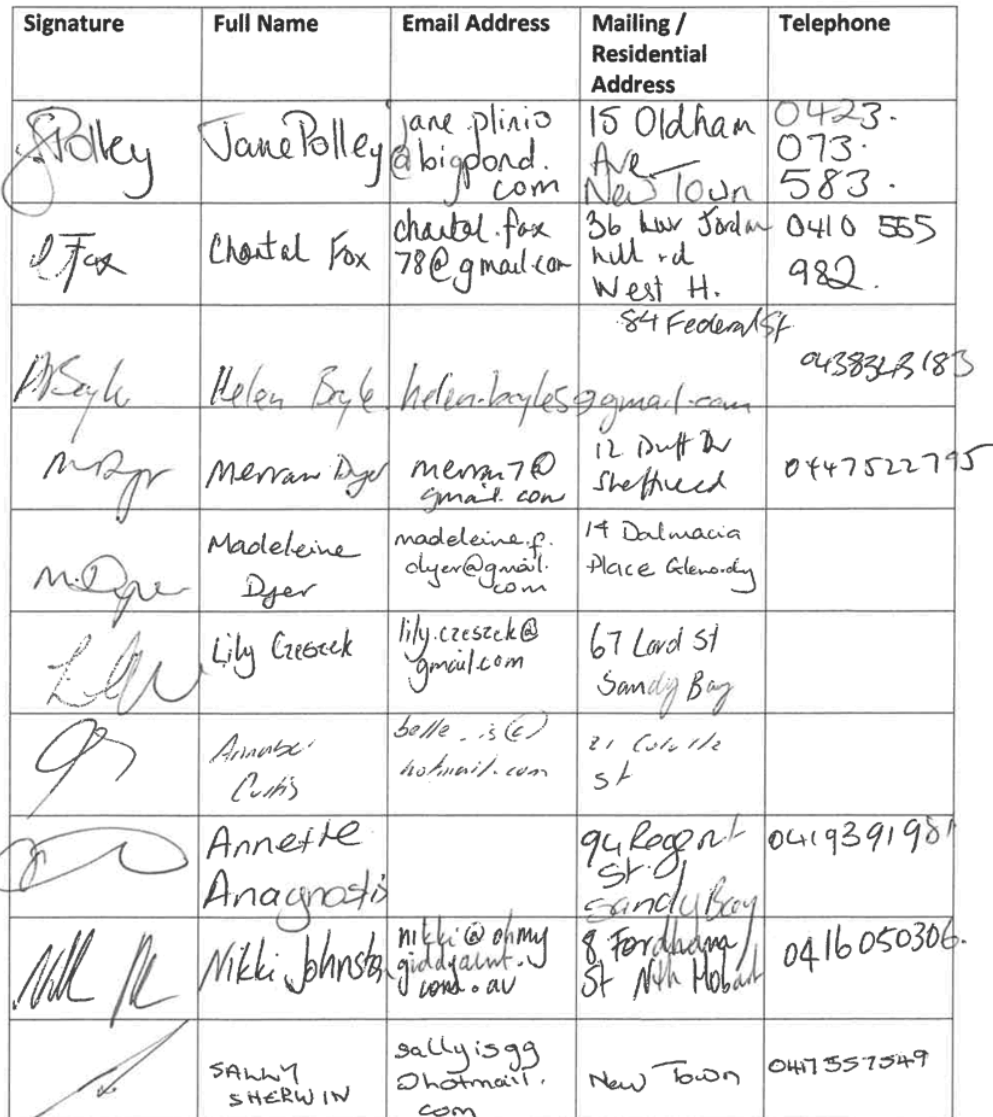 Signature Full Name Email Address Mailing /
Residential
Address Telephone
SPolley Jane Polley jane.plinio
@bigpond.
com 15 Oldham
Ave
New Town 0423.
073.
583.
C Fox Chantal Fox chantal.fox
78@gmail.com 36 Jordan
hill rd
West H. 0410 555
982.
84 Federal St
Helen helen.bayles@gmail.com 0438 183
Merran Dyer merran7@
gmail.com 12 Duff Dr
Sheffield 0447522795
Madeleine
Dyer madeleine.p.
dyer@gmail.
com 14 Dalmacia
Place Glenorchy
Lily Czeszek lily.czeszek@
gmail.com 67 Lord St
Sandy Bay
Annabel
Curtis belle_is@
hotmail.com 21 Colville
St
Annette
Anagnostis 94 Regent
St
Sandy Bay 0419391981
Nikki Johnston nikki@ohmy
giddyaunt.
com.au 8
St Nth Hobart 0416050306.
SALLY
SHERWIN sallyisgg
@hotmail.
com New Town 0417557549